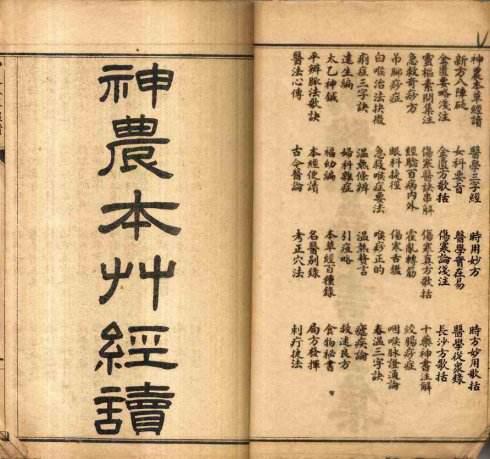 神農本草經讀 醫學三字經 時用妙方 時方妙用歌括
新方八陣砭 女科要旨 醫學實在易 醫學從眾錄
金匱要略淺注 金匱方歌括 傷寒論淺注 長沙方歌括
靈樞素問集注 傷寒醫訣串解 傷寒真方歌括 十藥神書注解
急救奇痧方 經驗百病內外 霍亂轉筋 絞腸痧症
吊腳痧症 眼科捷徑 傷寒舌鑑 咽喉脉證通論
白喉治法抉微 急救喉症要法 喉痧正的 春溫三字訣
痢症三字訣 溫熱條辨 溫熱贅言 瘧疾論
達生編 婦科雜症 引痘略 救迷良方
太乙神鍼 福幼編 本草經百種錄 食物秘書
平辨脉法歌訣 本經便讀 名醫別錄 局方發揮
醫法心傳 古今醫論 考正穴法 刺疔捷法
神農本艸經讀